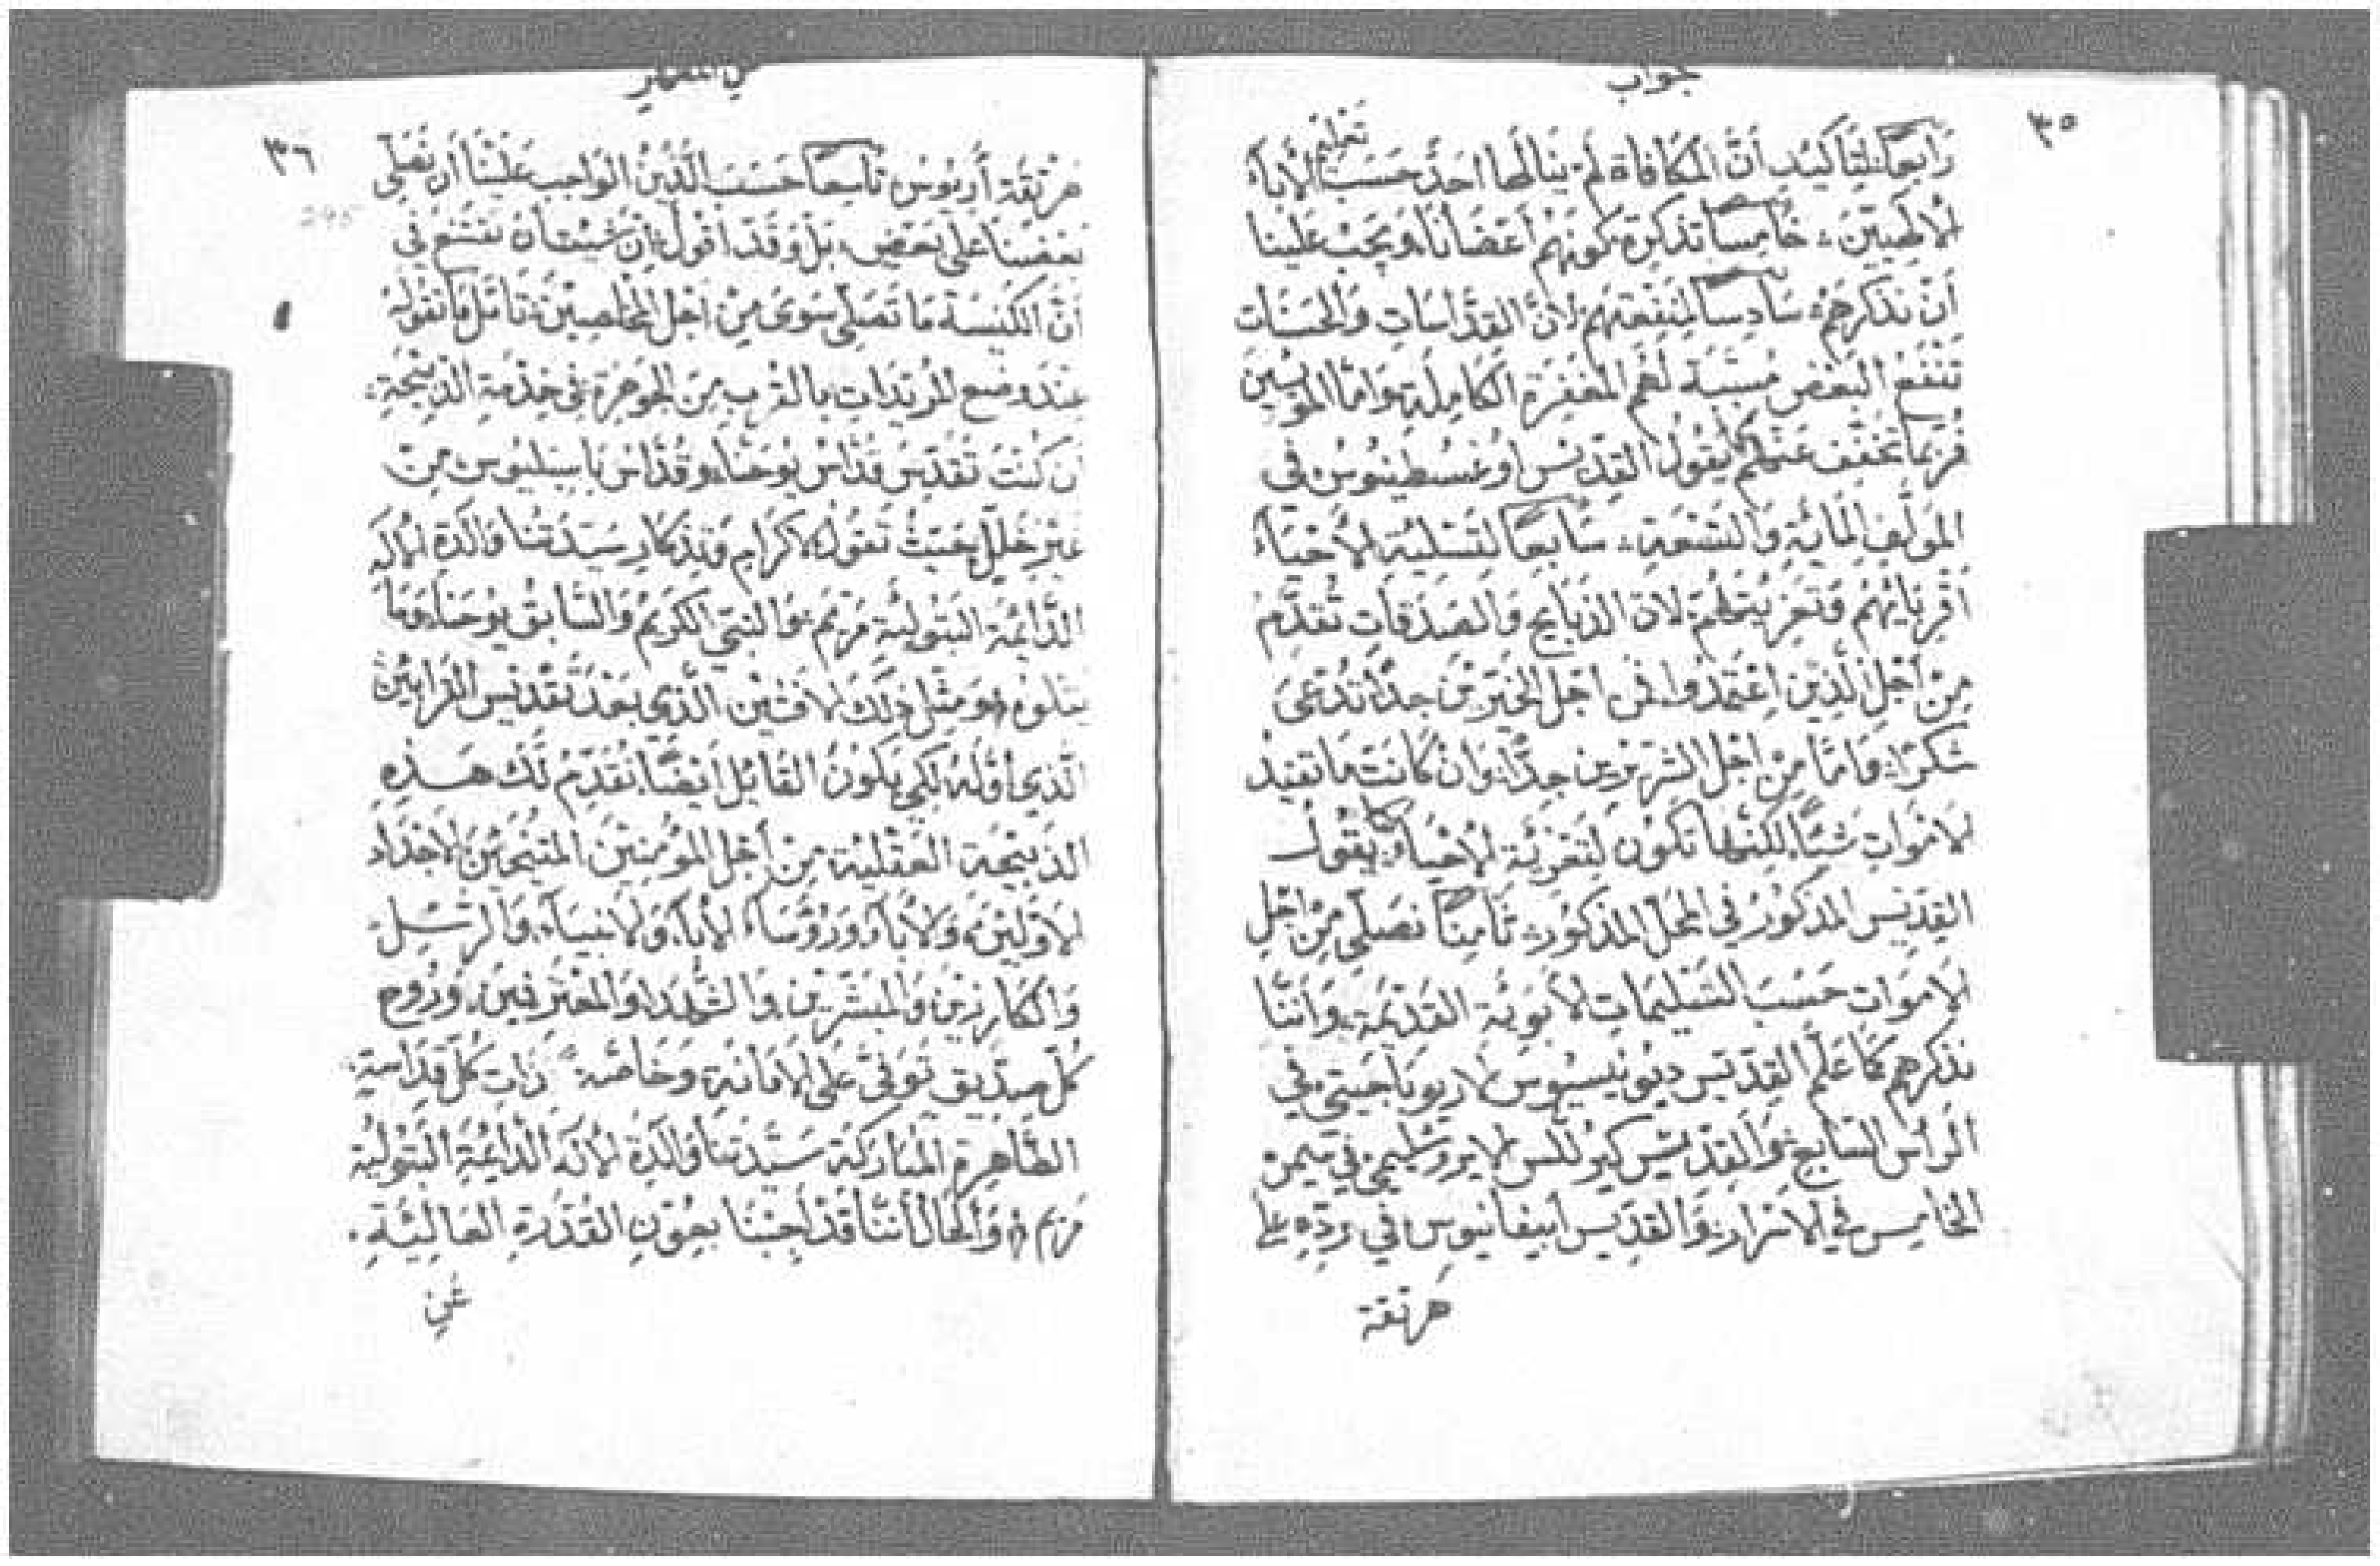 جواب
٣٥
تعليم
رَابِعًا لِتَاكيد أنَّ المكافاة لَم ينالها احدٌ حسَبَ الأباآء
الالهيّينَ، خَامِسًا تذكرة كونهم اعضَانا ويجب عَلينا
أن نذكرهم، سَادِسًا لمنفعتهم لانَّ القدَّاسَات وَالحسَنات
تنفع البعض مسببة لهم المغفرة الكاملة، وَامّا المعذبين
فربما تخفف عنهم كما يقول القدّيس اوغسطينوس في
المَولّف المائة وَالتسعة، سَابعًا لتسلية الاحيَاء
اقربايهم وتعزيتهم لان الذبايح والصَدقات تقدَّم
مِنْ أجل الذين اعتمدوا، فمن اجل الخيرين جدًّا تدعى
شكرًا، وَامّا مِن اجل الشريرين جدًّا، وَان كانت مَا تفيد
الاموات شيًا لكنّها تكون لتعزية الاحياء كما يقول
القديس المذكور في المحلّ المذكور، ثامِنًا نصَلّي مِن اجل
الاموات حسَبَ التسليمات الابويَّة القديمَة، وَأننّا
نذكرهم كما علَّم القدّيس ديونيسيوس الاريوباجيتي في
الرأس السَابع، وَالقدّيس كيرللس الايروشليمي في ميمن
الخامِس في الاسرار، وَالقديس ابيفانيوس في ردّه على
هرتقة
٣٦
هرتقة أريوس، تاسِعًا حسَبَ الدَّين الواجب عَلينا أن نصَلّي
بعضنا على بعض، بل وَقد أقول إن شئت أن تقتنع في
أنّ الكنيسة ما تصَلّي سوى مِن اجل المخلصين، تامّل ما تقوله
عند وضع المرتدات بالقرب مِن الجوهرة في خدمة الذبيحة،
ان كنتَ تقدّس قدَّاس يوحنا، وقدَّاس باسيليوس مِن
غير خلل بحيث تقول، لاكرام وَتذكار سَيّدتنا وَالدة الاله
الدَّائمَة البتوليَّة مَريم، وَالنبي الكريم وَالسَّابق يوحنا، وَمَا
يتلوه، ومثل ذلك الافشين الذي بعد تقديس القرابين
الَّذي أوّله لكي يكون، القائل ايضًا نقدّم لك هَذهِ
الذبيحة العقلية مِن أجل المؤمنين المتنيحين، الاجداد
الاوّلين، وَالاباء وَرؤسَاء الأباء، وَالانبيَاء، وَالرسُل
وَالكارزين، وَالمبشرين، وَالشهدا، وَالمعترفين، وَرُوح
كلّ صدّيق توفي على الامانة، وَخاصَّة ذات كلّ قداسَةٍ،
الطَّاهرة المباركة سَيّدتنا وَالدة الاله الدَّائمَة البتوليَّة
مَريم، وَالحَال أننّا قد اجبنا بعون القدرة العَاليَةِ.
عن